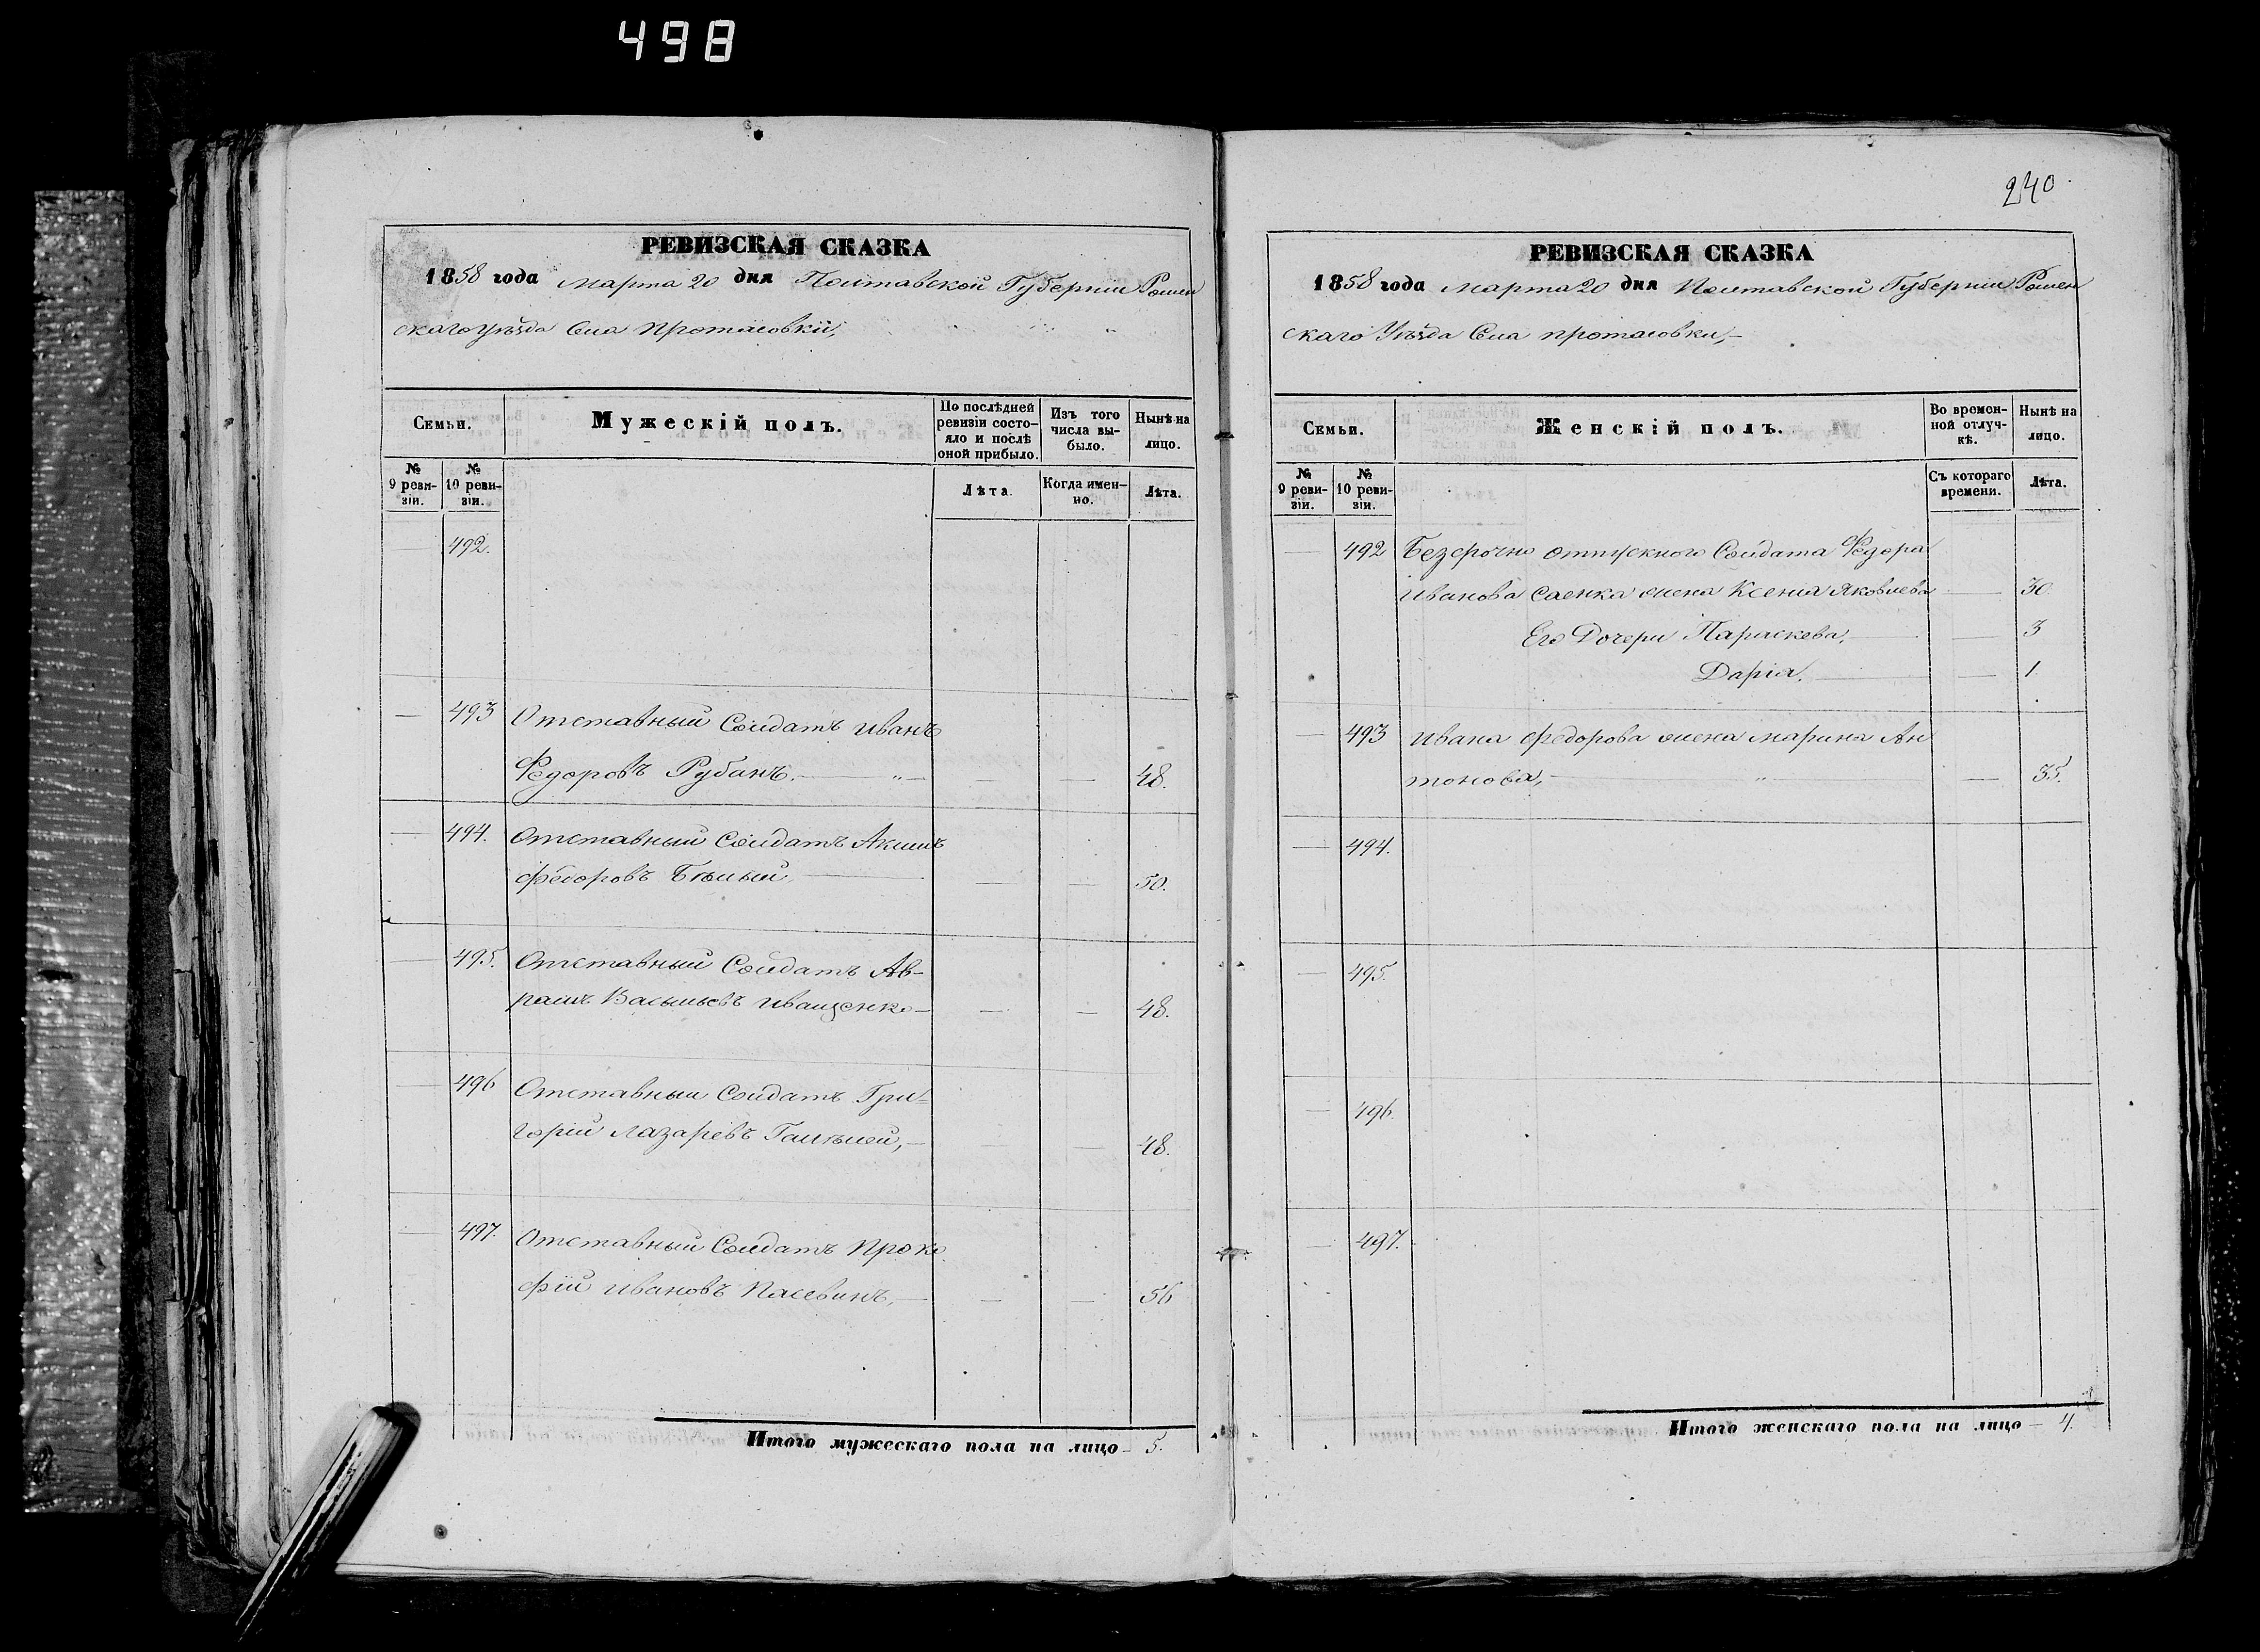 498
РЕВИЗСКАЯ СКАЗКА
1858 года марта 20 дня Полтавской Губерніи Ромен
скаго Уѣзда Села Протасовки,
Семьи.
Мужескій полъ.
По послѣдней ревизіи состояло и послѣ оной прибыло.
Изъ того числа выбыло.
Нынѣ на лицо.
№ 9 ревизіи.
№ 10 ревизіи.
Лѣта.
Когда именно.
Лѣта.
492.
493 Отставный Солдатъ Иванъ
Федоровъ Рубанъ. 48.
494. Отставный Солдатъ Акимъ
Федоровъ Бѣлый 50.
495. Отставный Солдатъ Ав-
рамъ Васильевъ Иващенко 48.
496 Отставный Солдатъ Гри-
горій Лазаревъ 48.
497. Отставный Солдатъ Проко
фій Ивановъ 56
Итого мужескаго пола на лицо 5.
240
РЕВИЗСКАЯ СКАЗКА
1858 года марта 20 дня Полтавской Губерніи Ромен
скаго Уѣзда Села Протасовки,
Семьи.
Женскій полъ.
Во временной отлучкѣ.
Нынѣ на лицо.
№ 9 ревизіи.
№ 10 ревизіи.
Съ котораго времени.
Лѣта.
492 Безсрочно отпускного Солдата Федора
Иванова Саенка жена Ксенія Яковлева 30
Его Дочери Параскева. 3
Дарія. 1
493 Ивана Федорова жена Марина Ан
тонова, 35.
494.
495.
496.
497.
Итого женскаго пола на лицо 4.